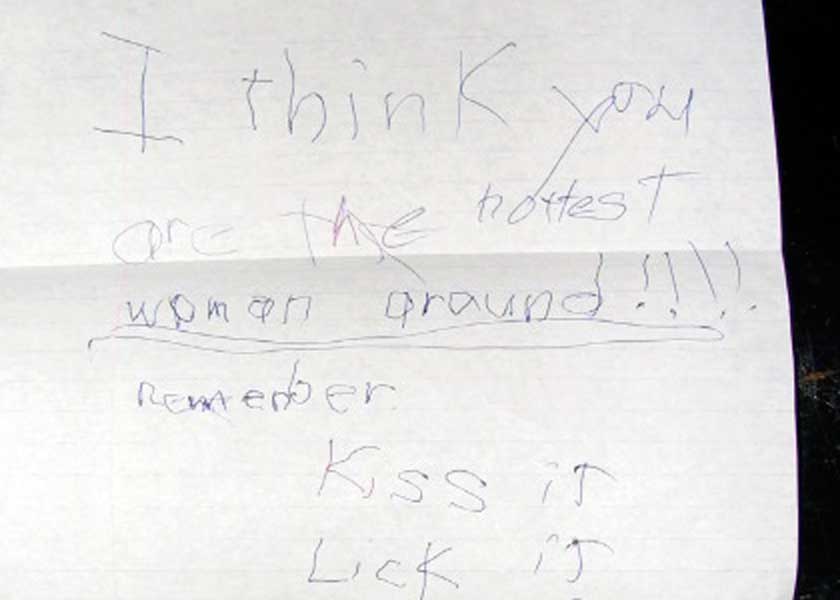 I think you
are the hottest
woman around!!!!
remember
Kiss it
Lick it